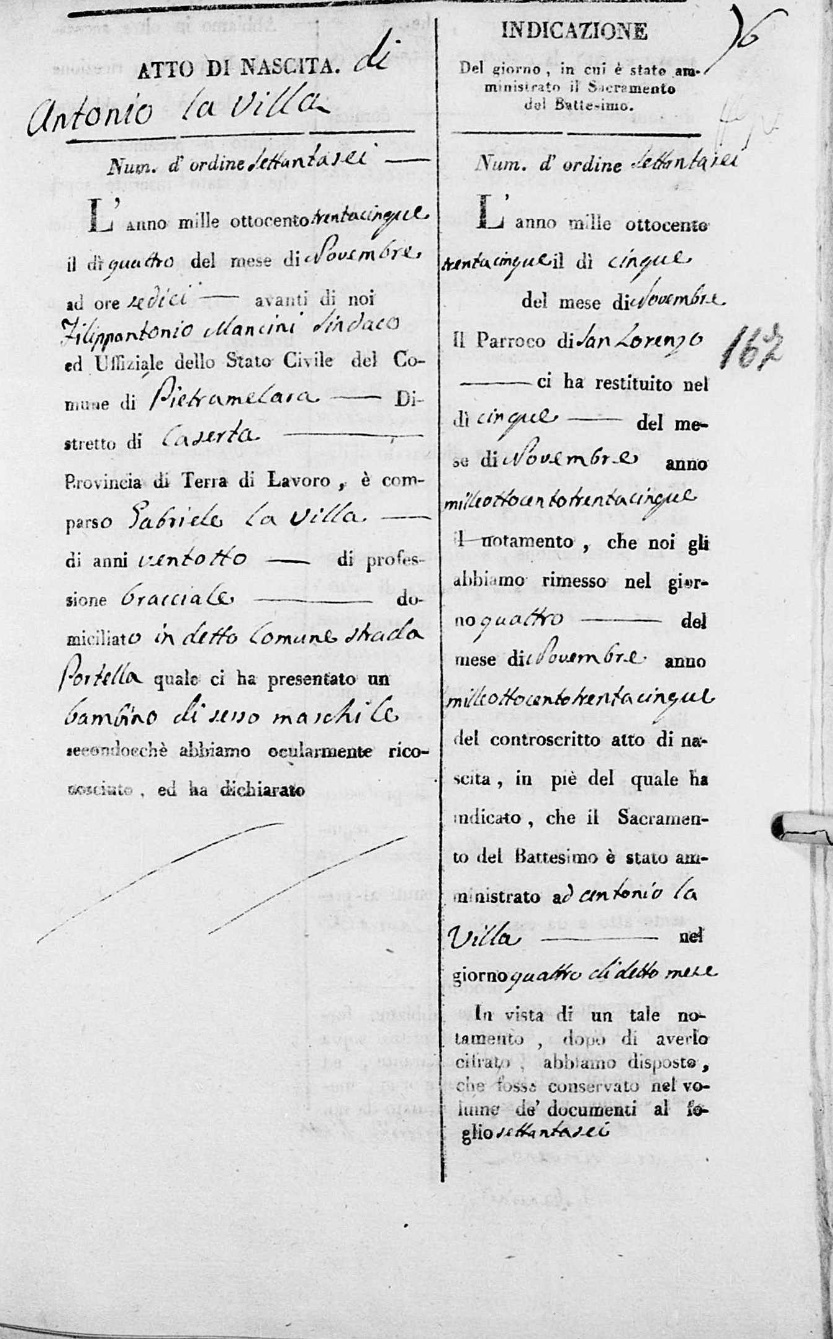 ATTO DI NASCITA. di
Antonio la Villa
Num. d' ordine settantasei
L' anno mille ottocento trentacinque
il dì quattro del mese di Novembre
ad ore sedici avanti di noi
Filippantonio Mancini Sindaco
ed Uffiziale dello Stato Civile del Co-
mune di Pietramelara Di-
stretto di Caserta
Provincia di Terra di Lavoro, è com-
parso Gabriele la Villa
di anni ventotto di profes-
sione bracciale do-
miciliato in detto Comune strada
Portella quale ci ha presentato un
bambino di sesso maschile
secondocchè abbiamo ocularmente rico-
nosciuto, ed ha dichiarato
76
INDICAZIONE
Del giorno, in cui è stato am-
ministrato il Sacramento
del Battesimo.
Num. d' ordine settantasei
L' anno mille ottocento
trentacinque il dì cinque
del mese di Novembre
Il Parroco di San Lorenzo
167
ci ha restituito nel
dì cinque del me-
se di Novembre anno
milleottocentotrentacinque
il notamento, che noi gli
abbiamo rimesso nel gior-
no quattro del
mese di Novembre anno
milleottocentotrentacinque
del controscritto atto di na-
scita, in piè del quale ha
indicato, che il Sacramen-
to del Battesimo è stato am-
ministrato ad Antonio la
Villa nel
giorno quattro di detto mese
In vista di un tale no-
tamento, dopo di averlo
cifrato, abbiamo disposto,
che fosse conservato nel vo-
lume de' documenti al fo-
glio settantasei